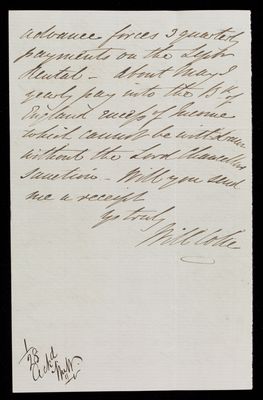 advance forces 3 quarterd
payments on the
Rental - about May I
yearly pay into the Bk of
England excess of Income
which cannot be withdrawn
without the Lord Chancellors
sanction - Will you send
me a receipt
Yrs truly
Will Coke
1/28
Ack'd